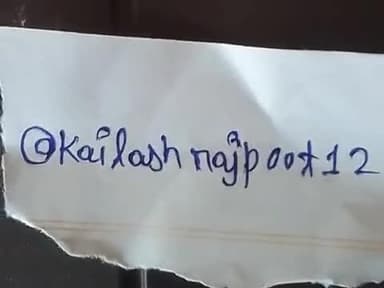 @kailash rajpoot12